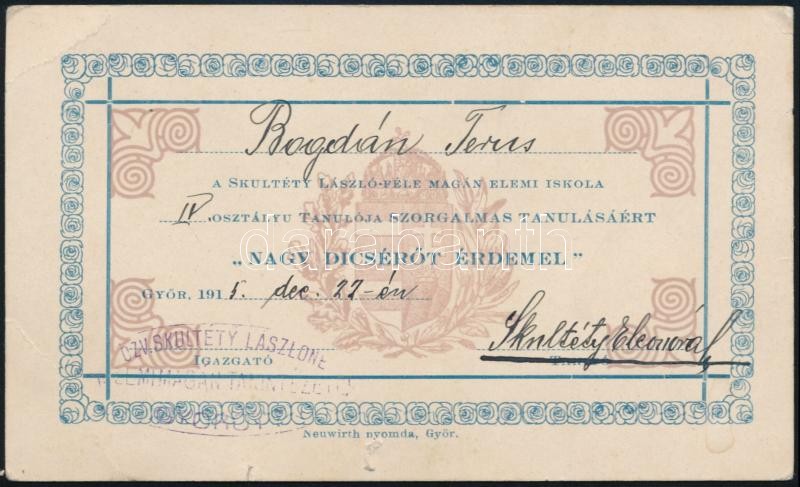 Bogdán Terus
A SKULTÉTY LÁSZLÓ-FÉLE MAGÁN ELEMI ISKOLA
IV. OSZTÁLYU TANULÓJA SZORGALMAS TANULÁSÁÉRT
„NAGY DICSÉRŐT ÉRDEMEL"
GYŐR, 1915. dec. 22-én
Skultéty Eleonóra
ÖZV. SKULTÉTY LÁSZLÓNÉ
IGAZGATÓ
Neuwirth nyomda, Győr.
databaanth